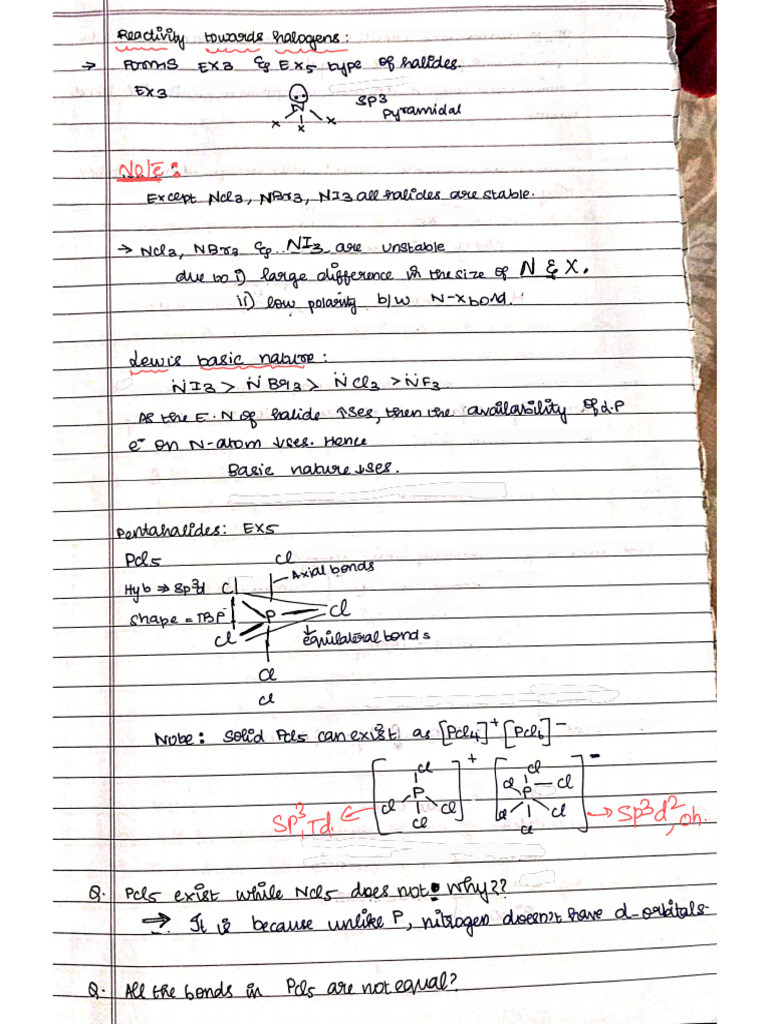 Reactivity towards halogens:
→ Forms EX3 & EX5 type of halides.
EX3
N
SP3
Pyramidal
X X X
Note:
Except NCl3, NBr3, NI3 all halides are stable.
→ NCl3, NBr3 & NI3 are unstable
due to i) large difference in the size of N & X.
ii) low polarity b/w N-X bond.
Lewis basic nature:
N̈I3 > N̈Br3 > N̈Cl3 > N̈F3
As the E.N of halide ↑ses, then the availability of l.P
e⁻ on N-atom ↓ses. Hence
Basic nature ↓ses.
Pentahalides: EX5
PCl5
Cl
Axial bonds
Hyb ⇒ SP3d
Cl
Shape = TBP
P
Cl
Cl
equilateral bonds
Cl
Cl
Note: Solid PCl5 can exist as [PCl4]⁺ [PCl6]⁻
[Cl P Cl Cl Cl]⁺ [Cl Cl P Cl Cl Cl Cl]⁻
SP³, Td. ← → SP3d², Oh.
Q. PCl5 exist while NCl5 does not. Why??
⇒ It is because unlike P, nitrogen doesn't have d-orbitals.
Q. All the bonds in PCl5 are not equal?